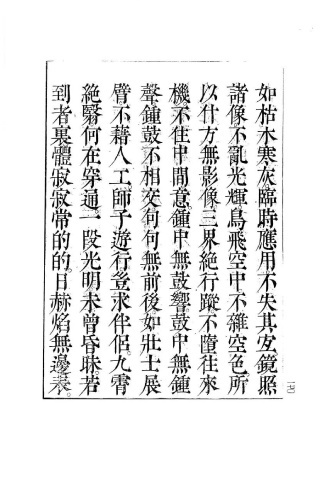 如枯木寒灰臨時應用不失其宐鏡照
諸像不亂光輝鳥飛空中不雜空色所
以什方無影像三界絶行蹤不墮往來
機不住中間意鍾中無鼓響鼓中無鍾
聲鍾鼓不相交句句無前後如壯士展
臂不藉人工師子遊行豈求伴侶九霄
絶翳何在穿通一段光明未曾昏昧若
到者裏體寂寂常的的日赫焰無邊表